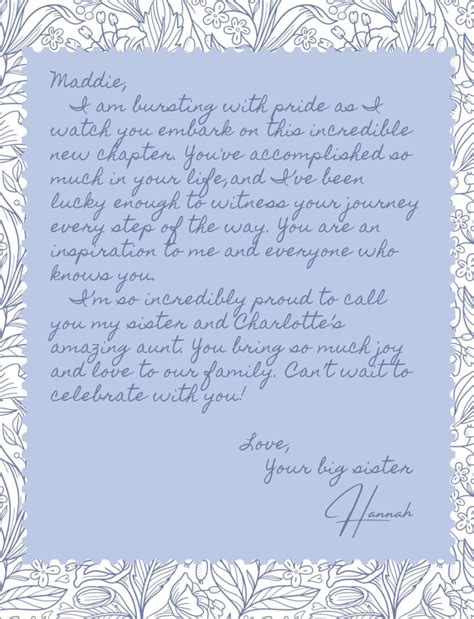 Maddie,
I am bursting with pride as I
watch you embark on this incredible
new chapter. You've accomplished so
much in your life, and I've been
lucky enough to witness your journey
every step of the way. You are an
inspiration to me and everyone who
knows you.
I'm so incredibly proud to call
you my sister and Charlotte's
amazing aunt. You bring so much joy
and love to our family. Can't wait to
celebrate with you!
Love,
Your big sister
Hannah